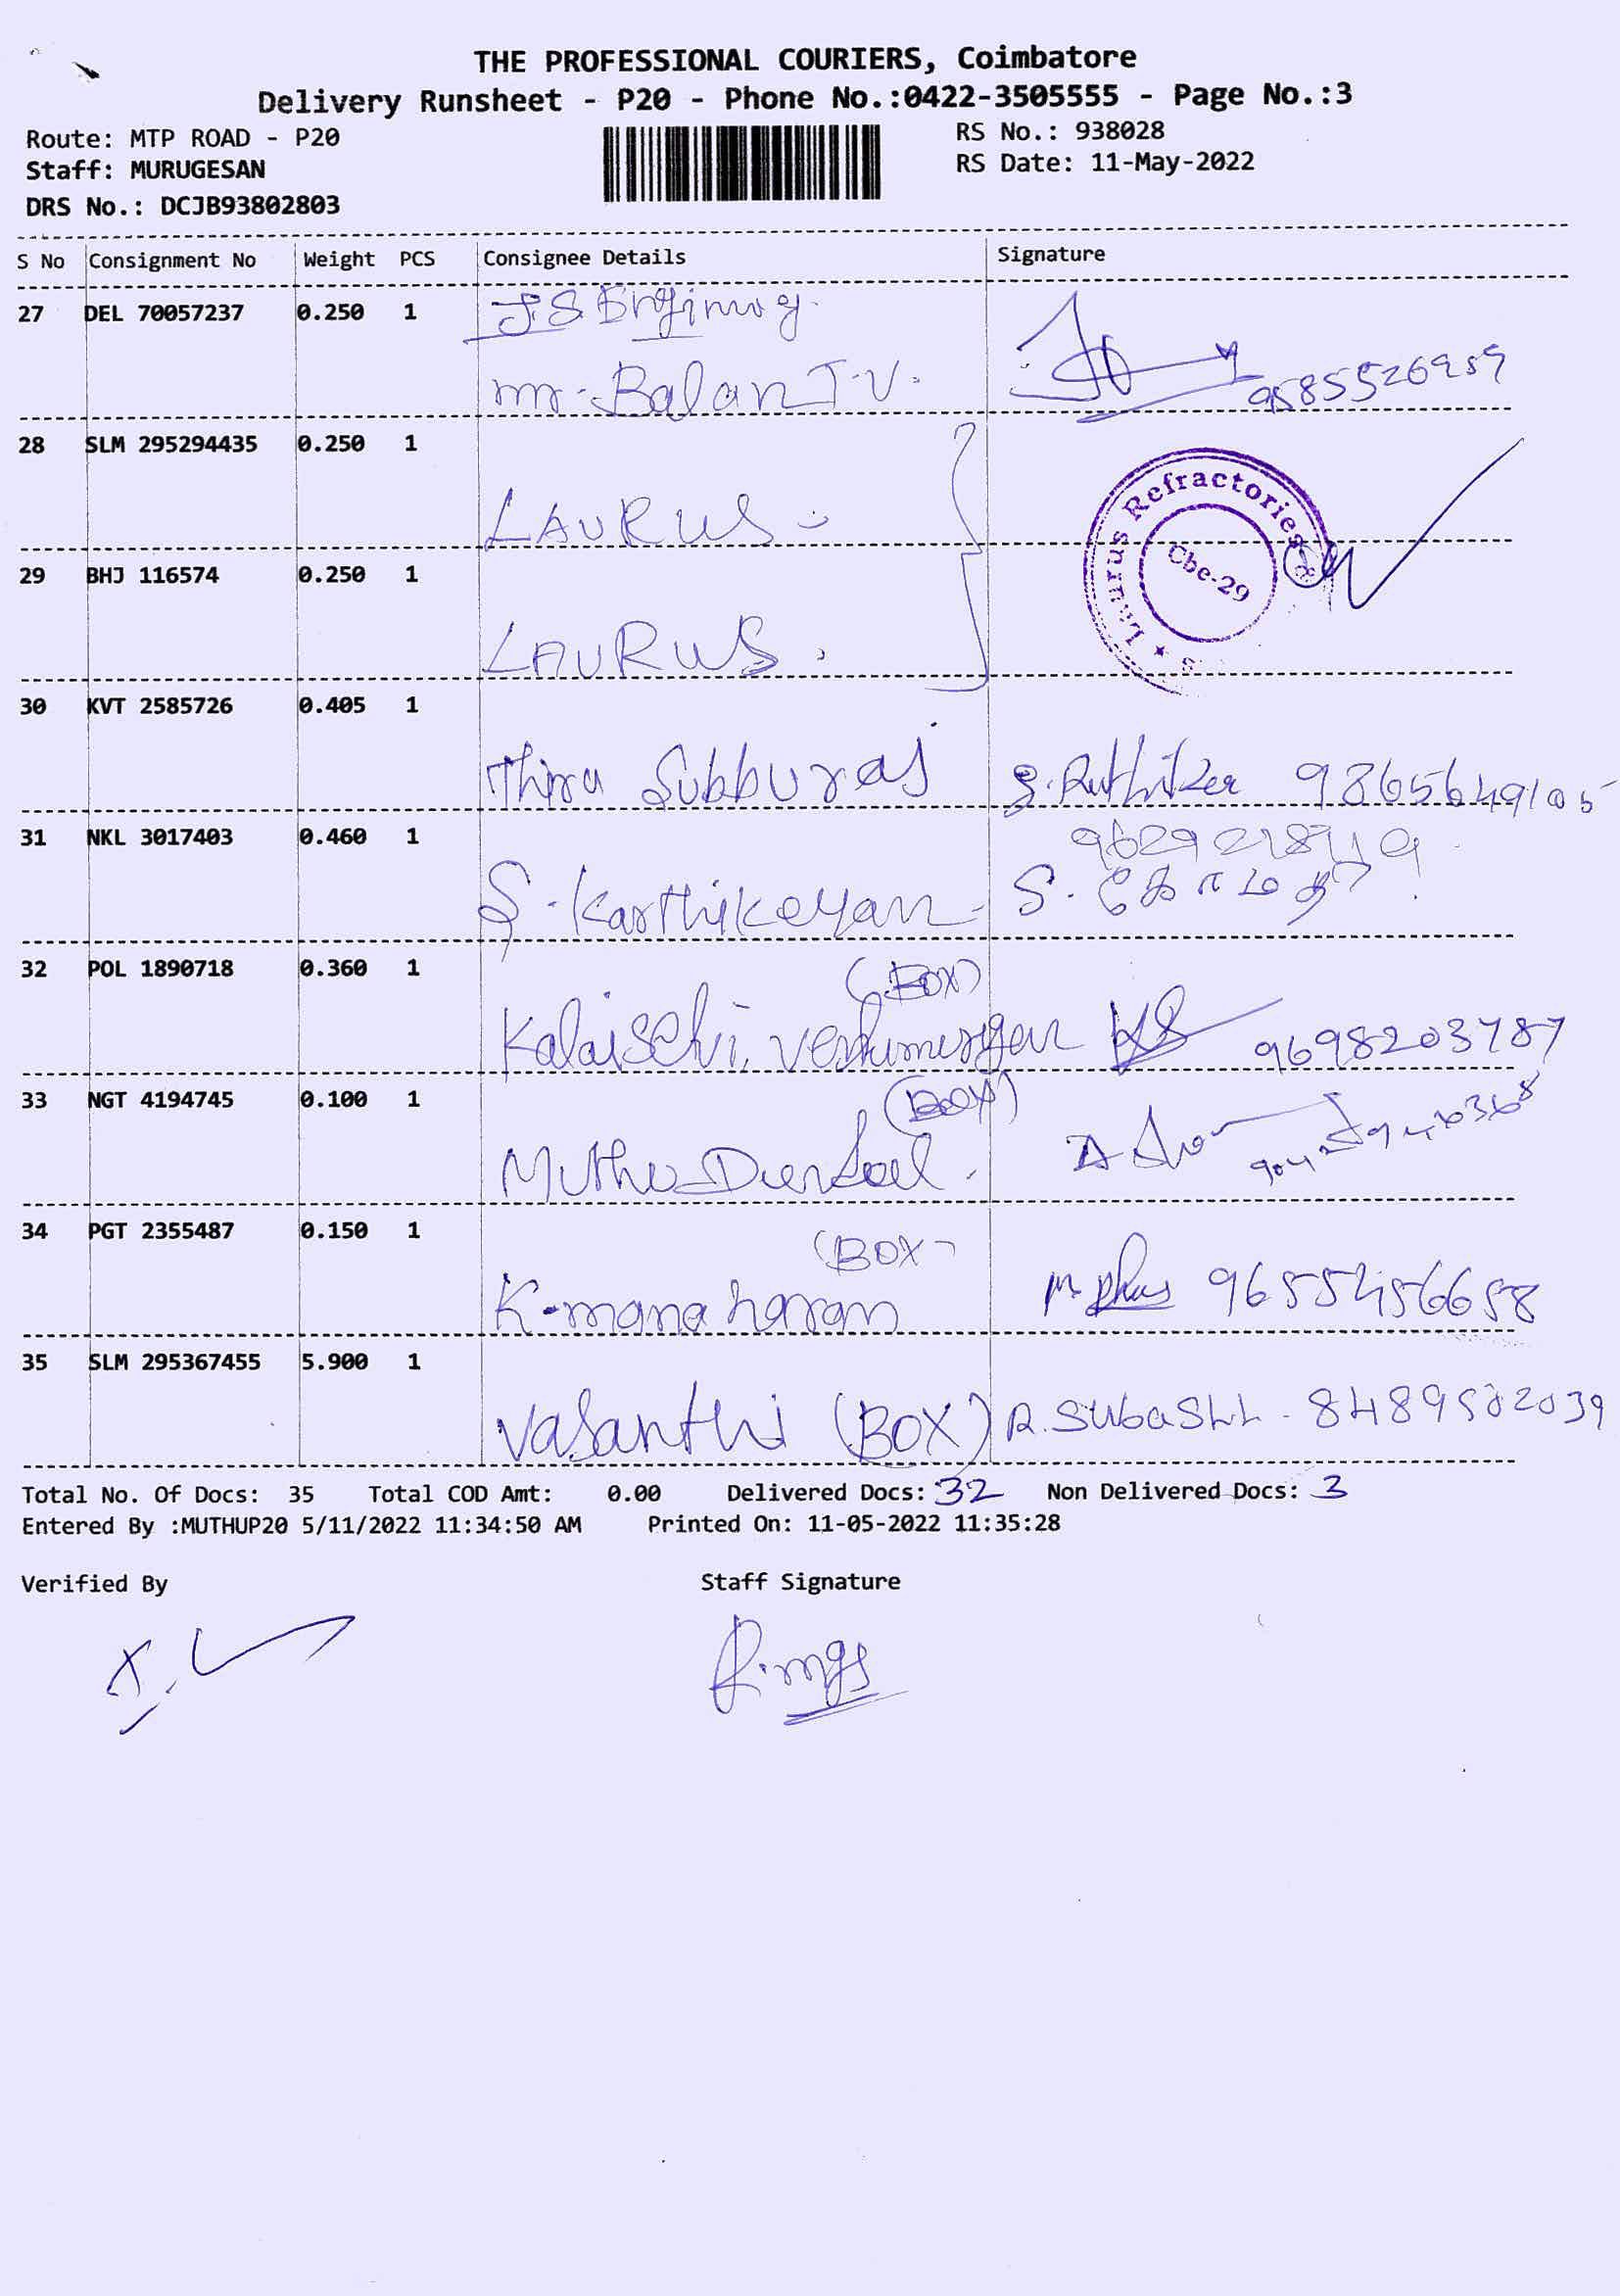 THE PROFESSIONAL COURIERS, Coimbatore
Delivery Runsheet - P20 - Phone No.:0422-3505555 - Page No.:3
Route: MTP ROAD - P20
RS No.: 938028
Staff: MURUGESAN
RS Date: 11-May-2022
DRS No.: DCJB93802803
S No Consignment No Weight PCS Consignee Details Signature
27 DEL 70057237 0.250 1 J.S
mr. Balan T.V. 9585526959
28 SLM 295294435 0.250 1
LAURUS
Laurus Refractories
Cbe-29
29 BHJ 116574 0.250 1
LAURUS.
30 KVT 2585726 0.405 1
Thiru Subburaj 9865649105
31 NKL 3017403 0.460 1
S. Karthikeyan S. கோமதி
32 POL 1890718 0.360 1 (BOX)
Kalaiselvi 9698203787
33 NGT 4194745 0.100 1 (BOX)
Muthu
34 PGT 2355487 0.150 1 (BOX)
K. manaharan
35 SLM 295367455 5.900 1
Vasanthi (BOX) R. SUBASH - 8489502039
Total No. Of Docs: 35 Total COD Amt: 0.00 Delivered Docs: 32 Non Delivered Docs: 3
Entered By :MUTHUP20 5/11/2022 11:34:50 AM Printed On: 11-05-2022 11:35:28
Verified By Staff Signature